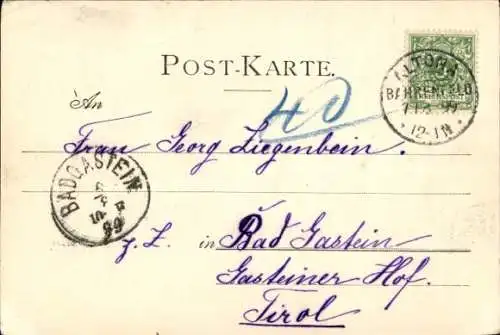 POST-KARTE.
40
ALTONA
BAHRENFELD
12-1N
An
Frau Georg Liegenbein.
BADGASTEIN
99
z. Z. in Bad Gastein
Gasteiner Hof.
Tirol